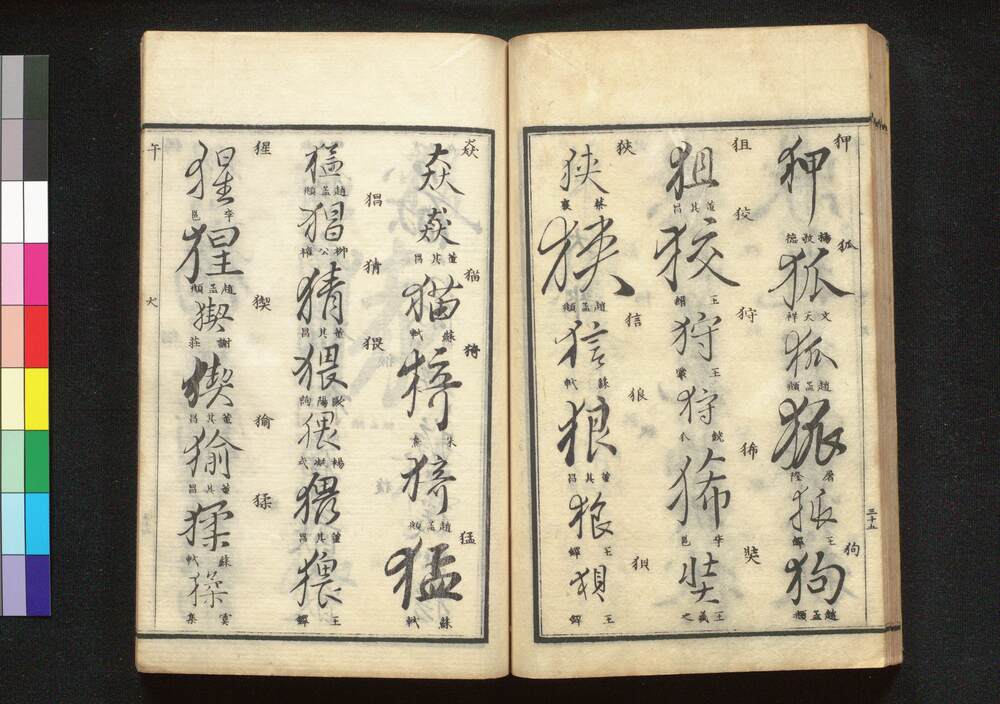 狎
狎
楊敬德
狐
狐
文天祥
狐
趙孟頫
狐
狐
王鐸
狗
狗
趙孟頫
三十五
狙
狙
董其昌
狡
狡
狩
狩
王蒙
狩
狶
狶
李邕
奘
奘
王羲之
狹
狹
蔡襄
狹
趙孟頫
狺
狺
蘇軾
狼
狼
董其昌
狼
王鐸
狽
狽
王鐸
猋
猋
猋
董其昌
猫
猫
蘇軾
猗
猗
朱熹
猗
趙孟頫
猛
猛
蘇軾
猛
趙孟頫
猖
猖
柳公權
猜
猜
董其昌
猥
猥
歐陽詢
猥
楊凝式
猥
董其昌
猥
王鐸
猩
猩
李邕
猩
趙孟頫
猰
猰
謝莊
猰
董其昌
㺄
㺄
董其昌
猱
猱
蘇軾
猱
虞集
午
犬